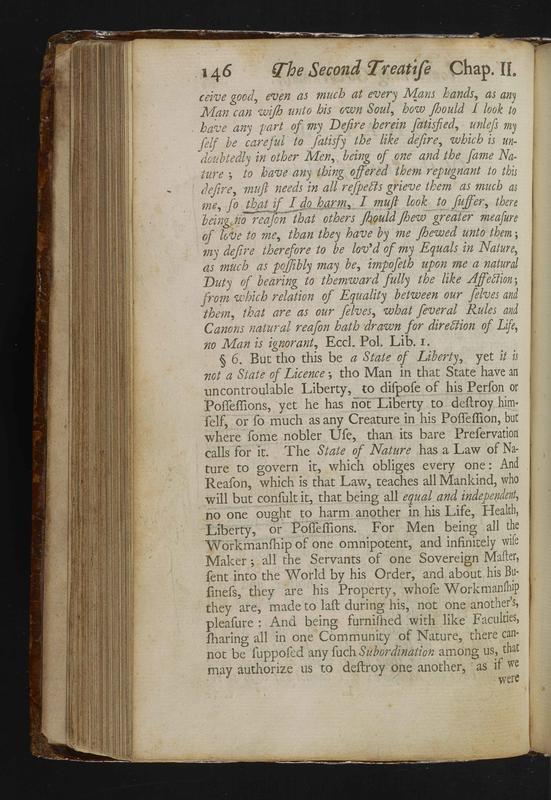 146 The Second Treatiſe Chap. II.
ceive good, even as much at every Mans hands, as any
Man can wiſh unto his own Soul, how ſhould I look to
have any part of my Deſire herein ſatisfied, unleſs my
ſelf be careful to ſatisfy the like deſire, which is un-
doubtedly in other Men, being of one and the ſame Na-
ture; to have any thing offered them repugnant to this
deſire, muſt needs in all reſpects grieve them as much as
me, ſo that if I do harm, I muſt look to ſuffer, there
being no reaſon that others ſhould ſhew greater meaſure
of love to me, than they have by me ſhewed unto them;
my deſire therefore to be lov'd of my Equals in Nature,
as much as poſſibly may be, impoſeth upon me a natural
Duty of bearing to themward fully the like Affection;
from which relation of Equality between our ſelves and
them, that are as our ſelves, what ſeveral Rules and
Canons natural reaſon hath drawn for direction of Life,
no Man is ignorant, Eccl. Pol. Lib. 1.
§ 6. But tho this be a State of Liberty, yet it is
not a State of Licence; tho Man in that State have an
uncontroulable Liberty, to diſpoſe of his Perſon or
Poſſeſſions, yet he has not Liberty to deſtroy him-
ſelf, or ſo much as any Creature in his Poſſeſſion, but
where ſome nobler Uſe, than its bare Preſervation
calls for it. The State of Nature has a Law of Na-
ture to govern it, which obliges every one: And
Reaſon, which is that Law, teaches all Mankind, who
will but conſult it, that being all equal and independent,
no one ought to harm another in his Life, Health,
Liberty, or Poſſeſſions. For Men being all the
Workmanſhip of one omnipotent, and infinitely wiſe
Maker; all the Servants of one Sovereign Maſter,
ſent into the World by his Order, and about his Bu-
ſineſs, they are his Property, whoſe Workmanſhip
they are, made to laſt during his, not one another's,
pleaſure: And being furniſhed with like Faculties,
ſharing all in one Community of Nature, there can-
not be ſuppoſed any ſuch Subordination among us, that
may authorize us to deſtroy one another, as if we
were